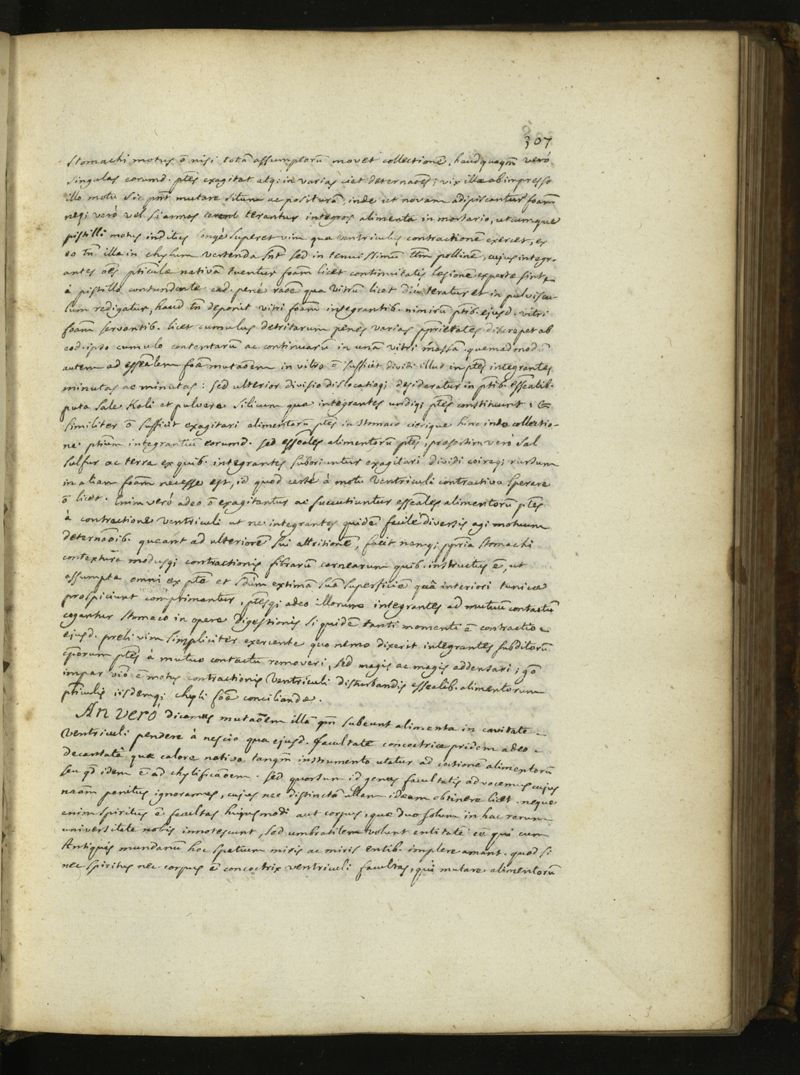 307
Stomachi motus ē nisi totā assumptorū movet collectionē, haudquaqm̄ verò
singulas eorumd. ptēs exagitat atq; in varias ciet determaōes; vix illae ab impresso
illo motu sic pnt mutare situm ac positurā, inde ut novam adipiscantur foām
neq; verò vel si annos terantur integros alimenta in mortario, utcumque
pistilli motus inditus longè superet vim qua ventriculus contractionē exercet, ex
eo tn̄ illa in chylum vertenda snt sed in tenuissimum pollinē, cujus integr-
antes oēs ptīculae nativā tuentur foam licet continuitatis lesione expertae sint
à pistillo contundente ead. penè raōe qua vitrū licet diù teratur et in pulviscu-
lum redigatur, haud tn̄ deponit vitri foām integrantib. nimirū ptib. ejusd. vitri
foām servantib. licet cumulus detritarum penes varias pprietates discrepet ab
eod. ipso cumulo contentarum ac continuarū in unā vitri massā. quemadmodū
autem ad essēalem foā mutaōem in vitro ē sufficit dividi illud in ptēs integrantes
minutas ac minutas: sed ulterior divisio dislocatioq; desideratur in ptib. essēalib.
puta sale Kali et pulvere silicum quae integrantes undiq; ptēs constituunt;
similiter ē sufficit exagitari alimentorū ptēs in stomaco cierique hinc inde collectio-
ne ptium integrantiū eorumd. sed essēales alimentorū ptēs, verò sal
sulfur ac terra ex quib. integrantes suboriuntur exagitari dividi coireq; rursum
in aliam foām necesse est, id quod certè à motu ventriculi contractivo sperare
ē licet. Enim verò adeo ē exagitantur ac succutiuntur essēales alimentorū ptēs
à contractione ventriculi ut nec integrantes quidē facilè diversis agi motuum
determaōib. queant ad ulteriorē sui attritionē, facit namq; ppria stomachi
contexturā modusq; contractionis fibrarū carnearum quib. instructus ē, ut
assumpta omni ex pte et sdum extimā suā superficiē quā interiori tunicae
prospiciunt comprimantur, ptesq; adeo illorum integrantes ad mutuū contactū
cogantur stomaco in opere digestionis si quidē tanti momenti ē contractio
ejusd. preli vim simpliciter exercente quo nemo dixerit integrantes subditorū
cporum ptēs à mutuo contactu removeri, sed magis ac magis addensari; gō
impar viō ē motus contractionis ventriculi disturbandis essēalib. alimentorum
ptīculis iisdemq; chyli foā conciliandae.
An verò dicamus mutaōem illā qm̄ subeunt alimenta in cavitate
ventriculi pendere à nescio qua ejusd. facultate concoctrice pridem adeo
decantatā quae calore nativo tanqm̄ instrumento utatur ad coctionē alimentorū
seu qd idem ē ad chylificaōem. sed quorsum id genus facultatis advocemus cujus
naām penitus ignoramus, cujus nec distinctā ullam ideam obtinere licet. neque
enim spiritus ē facultas hujusmodi aut corpus, quae duo solum in hac rerum
universitate nobis innotescunt, sed umbratilem velunt entitatē eē qui cum
Antiquis mundanum hoc spatium miris ac miris entib. implere amant. quod si
nec spiritus nec corpus ē concoctrix ventriculi facultas, quì mutare alimentorū